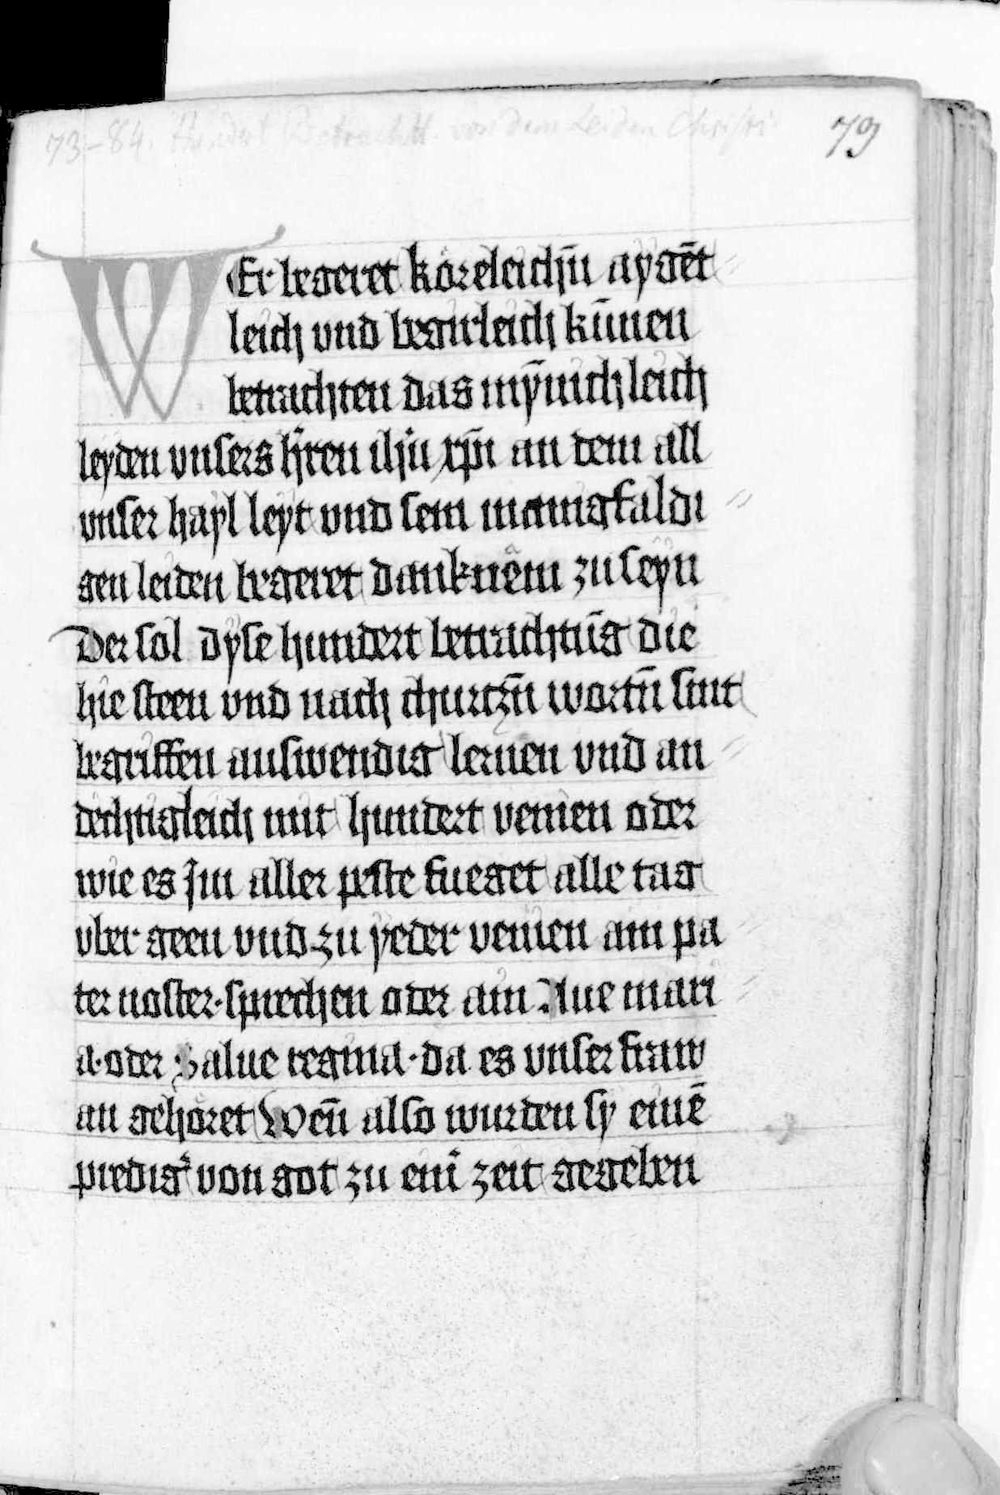 73–84. Hundert Betracht. von dem Leiden Christi
79
WEr begeret kóreleichñ aygēt
leich vnd begirleich kūnen
betrachten das mȳnichleich
leyden vnsers h̄ren ih̄u xp̄i an dem all
vnser hayl leyt vnd sein manigfaldi
gen leiden begeret danknêm zu seyn
Der sol dyse hundert betrachtūg die
hie steen vnd nach churtzn̄ wortn̄ sint
begriffen auswendig lernen vnd an
dechtigleich mit hundert venien oder
wie es Im aller peste fueget alle tag
vber geen vnd zu yeder venien ain pa
ter noster·sprechen oder ain Aue mari
a·oder Salue regina·da es vnser fraw
an gehöret Wen̄ also wurden sy einē
predig̓ von got zu ein̓ zeit gegeben